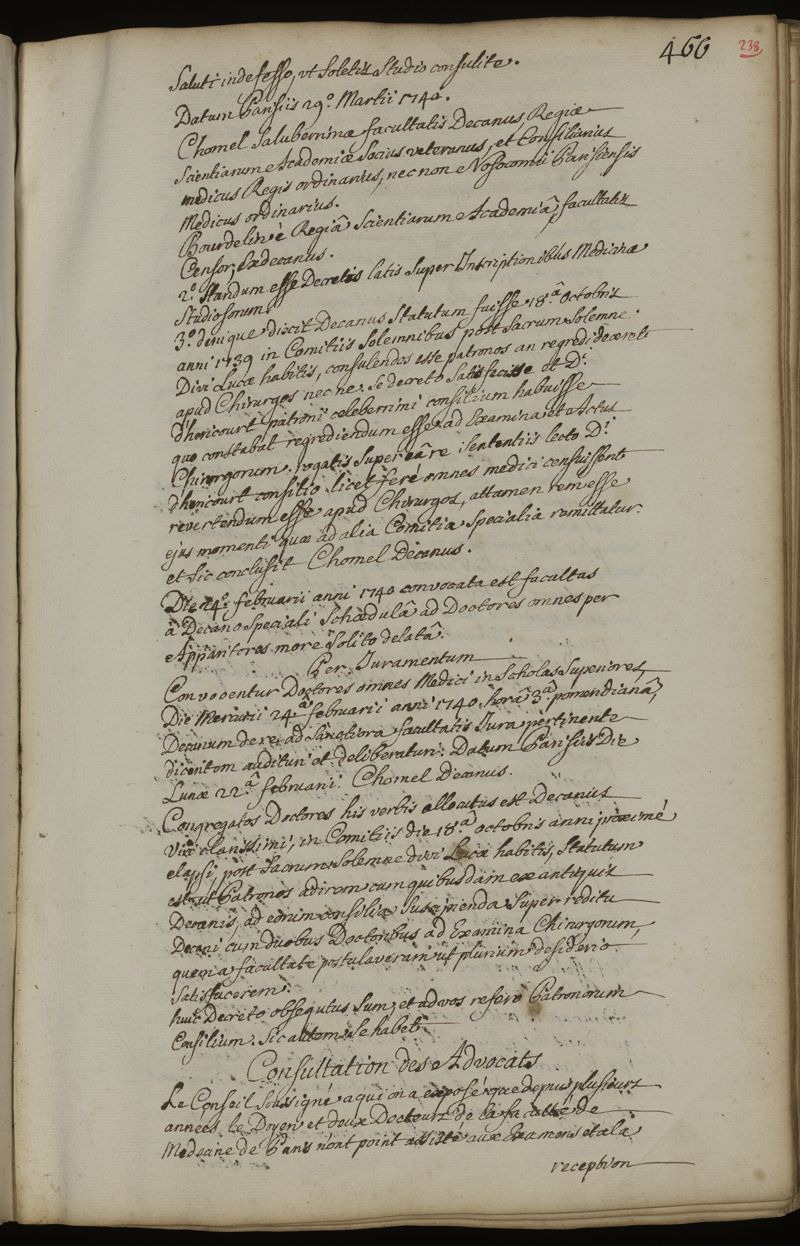 466
238
Saluti indefesso, ut soletis studio consulite.
Datum Parisiis 29° Martii 1740.
Chomel Saluberrimæ facultatis Decanus, Regiæ
Scientiarum Academiæ Socius veteranus, et Consiliarius
medicus Regis ordinarius, nec non Nosocomii Parisiensis
Medicus ordinarius.
Bourdelin è Regiâ Scientiarum Academiâ, facultatis
Censor, Exdecanus.
2° Standum esse Decretis latis super Inscriptionibus Medicinæ
Studiosorum.
3° denique dixit Decanus Statutum fuisse 18.â Octobris
anni 1739 in Comitiis Solemnibus post Sacrum Solemne
Divi Lucæ habitis, consulendos esse patronos an regredi deceret
apud Chirurgos nec ne. se decreto Satisfecisse et D.i
d'hericourt patroni celeberrimi consilium habuisse
quo constabat regrediendum esse ad Examina et Actus
Chirurgorum. rogatis super eâ re sententiis lecto D.i
d'hericourt consilio licet ferè omnes medici censuissent
revertendum esse apud Chirurgos, attamen rem esse
ejus momenti quæ ad alia Comitia Specialia remittatur.
et sic conclusit Chomel Decanus.
Die 24â februarii anni 1740 convocata est facultas
à Decano Speciali Schædulâ ad Doctores omnes per
Apparitores more solito delatâ.
Per Iuramentum
Convocentur Doctores omnes Medici in Scholas Superiores,
Die Mercurii 24â februarii anni 1740, horâ 3.â pomeridianâ,
Decanum de re ad Sanctiora facultatis Iura pertinente
dicentem audituri et deliberaturi. Datum Parisiis Die
Lunæ 22.â februarii. Chomel Decanus.
Congregatos Doctores his verbis allocutus est Decanus
Viri clarissimi, in Comitiis die 18.â octobris anni proximè
elapsi, post Sacrum Solemne divi Lucæ habitis, Statutum
est ut Patronos adirem cum quibusdam ex antiquis
Decanis, ad eorum consilia suscipienda super reditu
Decani cum duobus Doctoribus ad Examina Chirurgorum,
quem a facultate postulaveram ut plurium desiderio
satisfacerem.
huic Decreto obsequtus sum, et ad vos refero Patronorum
Consilium. Sic autem se habet
Consultation des Advocats
Le Conseil soussigné a qui on a exposé que depuis plusieurs
années le Doyen et deux Docteurs de la faculté de
Medecine de Paris n'ont point assisté aux Examens et a la
reception